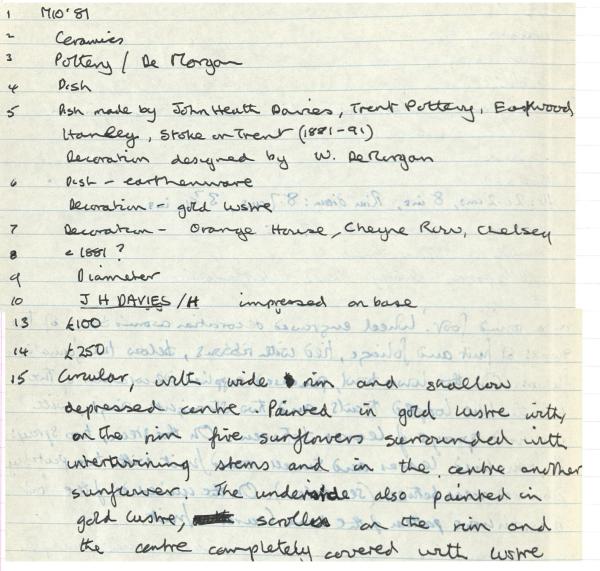 1 M10'81
2 Ceramics
3 Pottery / De Morgan
4 Dish
5 Dish made by John Heath Davies, Trent Pottery, Eastwood
Hanley, Stoke on Trent (1881-91)
Decoration designed by W. DeMorgan
6 Dish - earthenware
Decoration - gold lustre
7 Decoration - Orange House, Cheyne Row, Chelsey
8 c 1881 ?
9 Diameter
10 J H DAVIES / H impressed on base
13 £100
14 £250
15 Circular, with wide rim and shallow
depressed centre. Painted in gold lustre with,
on the rim five sunflowers surrounded with
intertwining stems and in the centre another
sunflower. The underside also painted in
gold lustre, scrolls on the rim and
the centre completely covered with lustre